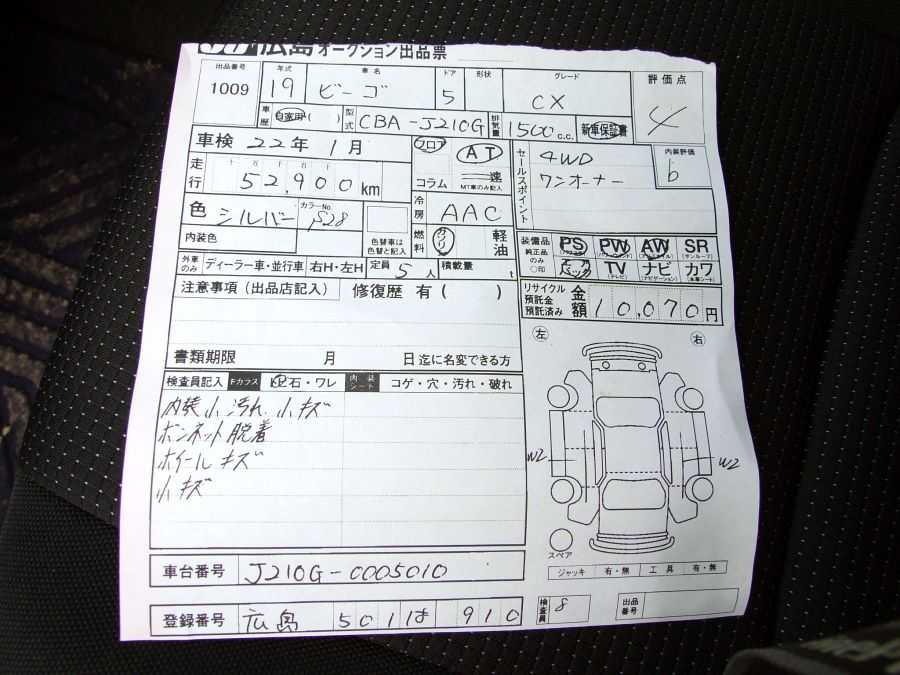 広島 オークション出品票
出品番号 年式 車名 ドア 形状 グレード 評価点
1009 19 ビーゴ 5 CX 4
車歴 自家用( ) 型式 CBA-J210G 排気量 1500 c.c. 新車保証書
車検 22年 1月 フロア AT セールスポイント 4WD 内装評価
走行 52,900 km コラム 速 ワンオーナー b
MT車のみ記入
色 シルバー カラーNo. S28 冷房 AAC
内装色 色替車は色替と記入 燃料 ガソリン 軽油 装備品 純正品のみ○印 PS PW AW SR
TV ナビ カワ
外車のみ ディーラー車・並行車 右H・左H 定員 5人 積載量 t
注意事項(出品店記入) 修復歴 有( ) リサイクル預託金預託済み 金額 10,070円
左 右
書類期限 月 日迄に名変できる方
検査員記入 Fガラス 飛石・ワレ 内装シート コゲ・穴・汚れ・破れ
内装小汚れ 小キズ
ボンネット脱着
ホイールキズ
小キズ
W2 W2
スペア
ジャッキ 有・無 工具 有・無
車台番号 J210G-0005010
登録番号 広島 501 は 910 検査員 8 出品番号